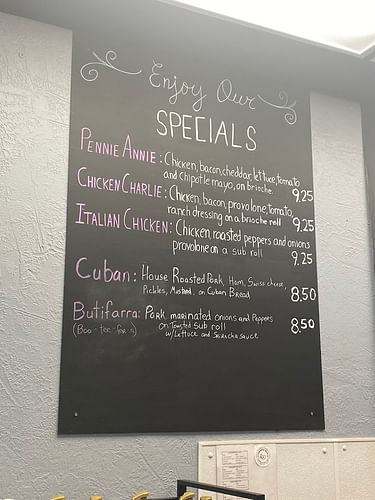 Enjoy Our
SPECIALS
PENNIE ANNIE: Chicken, bacon, cheddar, lettuce, tomato
and Chipotle mayo, on brioche. 9.25
CHICKEN CHARLIE: Chicken, bacon, provolone, tomato,
ranch dressing on a brioche roll 9.25
ITALIAN CHICKEN: Chicken, roasted peppers and onions
provolone on a sub roll 9.25
Cuban: House Roasted Pork, Ham, Swiss cheese,
Pickles, Mustard, on Cuban Bread 8.50
Butifarra: Pork marinated onions and Peppers
(Boo-tee-far-a) on Toasted Sub roll 8.50
w/Lettuce and Sriracha sauce